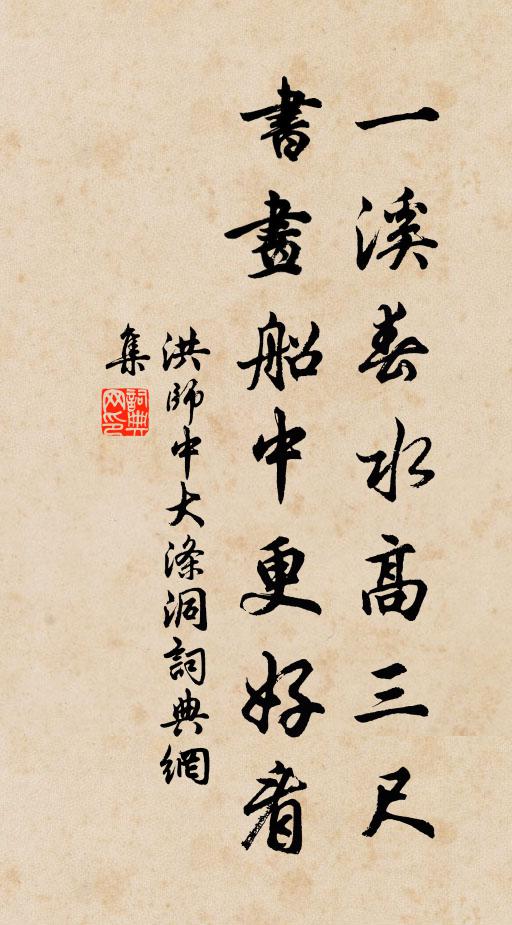 一溪春水高三尺
書畫船中更好看
洪師中大滌洞詞典網
集
詞典網印